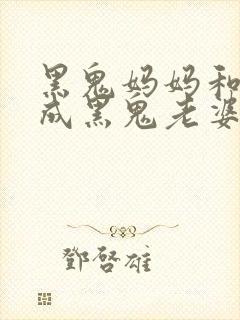 黑鬼妈妈和
成黑鬼老婆
鄧啓雄